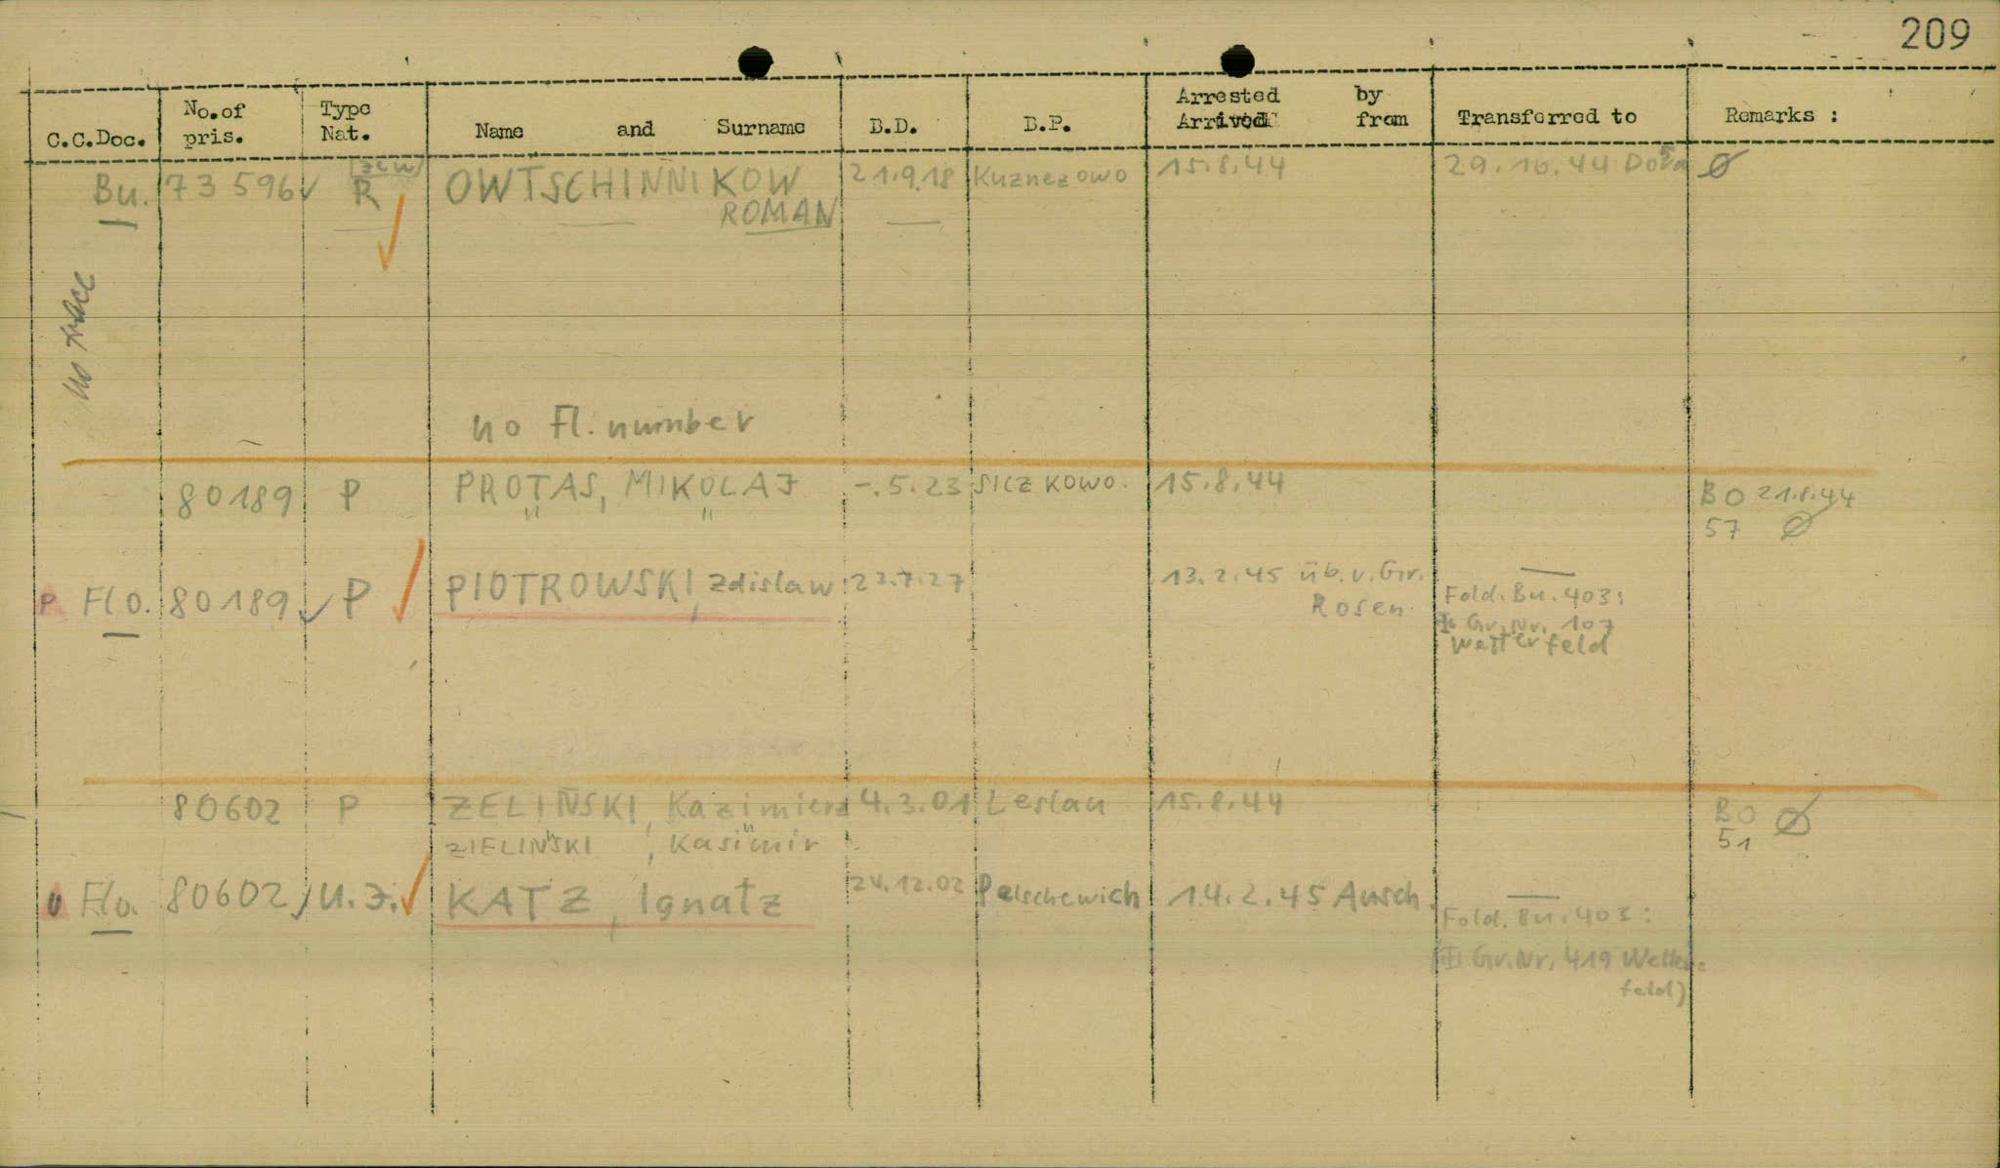 209
C.C.Doc. No.of pris. Type Nat. Name and Surname B.D. B.P. Arrested by Arrived from Transferred to Remarks :
Bu. 73 596 R OWTSCHINNIKOW 21.9.18 Kuznezowo 15.8.44 29.10.44 Dora
ROMAN
no trace
no Fl. number
80189 P PROTAS, MIKOLAJ -.5.23 SICZKOWO. 15.8.44 BO 21.8.44
" " 57
P Flo. 80189 P PIOTROWSKI, Zdislaw 23.7.27 13.2.45 üb. v. Gr. Rosen Fold. Bu. 403:
Gr. Nr. 107
Wetterfeld
80602 P ZELIŃSKI, Kazimierz 4.3.01 Leslau 15.8.44 BO
ZIELIŃSKI, Kasimir 51
U Flo. 80602 U.J. KATZ, Ignatz 24.12.02 Pelschewich 14.2.45 Ausch. Fold. Bu. 403:
Gr. Nr. 419 Wetter-
feld)